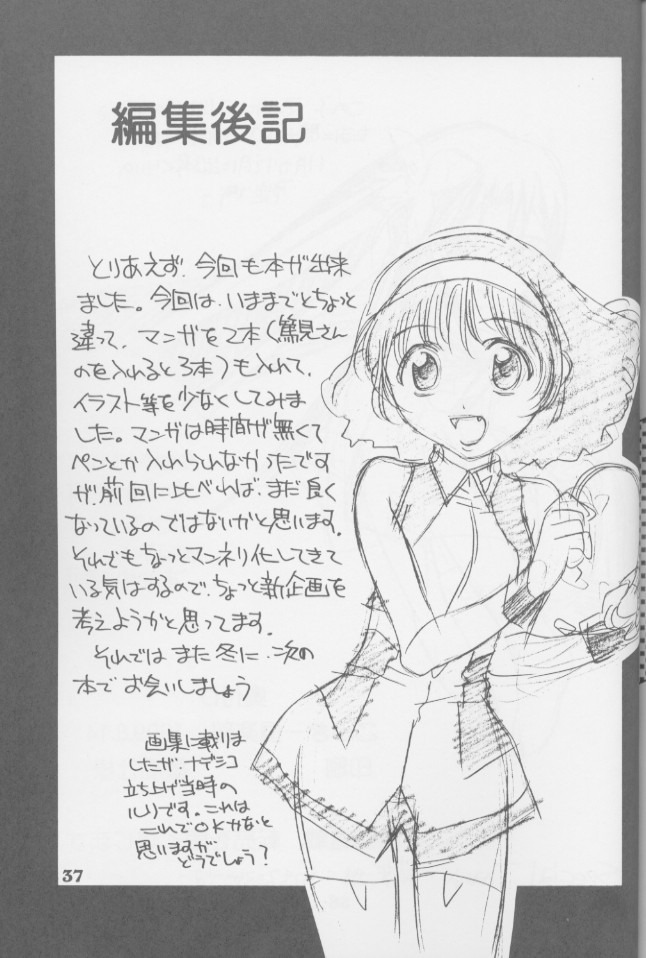 編集後記
とりあえず、今回も本が出来
ました。今回は、いままでとちょっと
違って、マンガを2本(篤見さん
のを入れると3本)も入れて、
イラスト等を少なくしてみま
した。マンガは時間が無くて
ペンとか入れられなかったです
が、前回に比べれば、まだ良く
なっているのではないかと思います。
それでもちょっとマンネリ化してきて
いる気はするので、ちょっと新企画を
考えようかと思ってます。
それでは また 冬に、次の
本で お会いしましょう
画集に載りは
したが、ナデシコ
立ち上げ当時の
ルリです。これは
これでOKかなと
思いますが
どうでしょう?
37